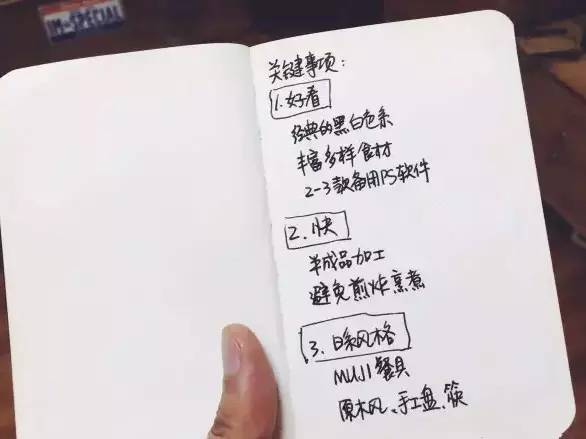 IM-SPECIAL
关键事项：
1.好看
经典的黑白色系
丰富多样食材
2-3款备用PS软件
2.快
半成品加工
避免煎炸烹煮
3.日系风格
MUJI餐具
原木风、手工盘、筷